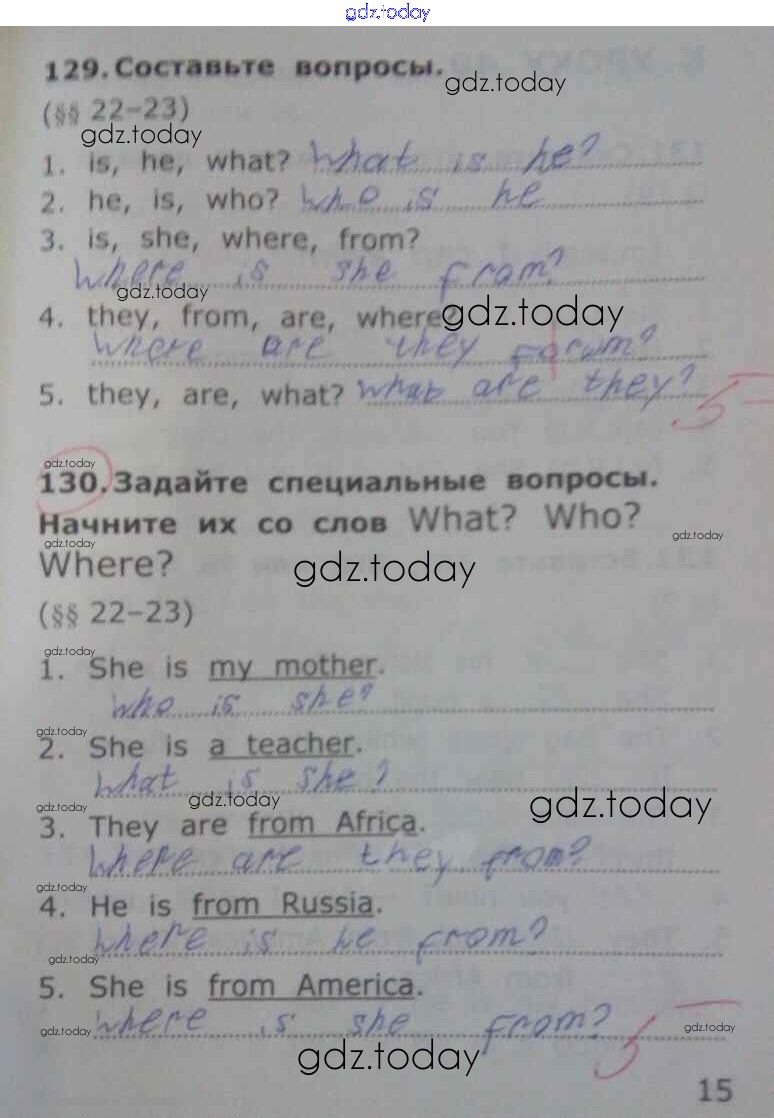 gdz.today
129. Составьте вопросы.
gdz.today
(§§ 22–23)
gdz.today
1. is, he, what? What is he?
2. he, is, who? Who is he
3. is, she, where, from?
Where is she from?
gdz.today
4. they, from, are, where?
gdz.today
Where are they from?
5. they, are, what? What are they?
5
gdz.today
130. Задайте специальные вопросы.
Начните их со слов What? Who?
gdz.today
gdz.today
Where?
gdz.today
(§§ 22–23)
gdz.today
1. She is my mother.
who is she?
gdz.today
2. She is a teacher.
What is she?
gdz.today
gdz.today
gdz.today
3. They are from Africa.
Where are they from?
gdz.today
4. He is from Russia.
Where is he from?
gdz.today
5. She is from America.
Where is she from?
gdz.today
gdz.today
5
gdz.today
15